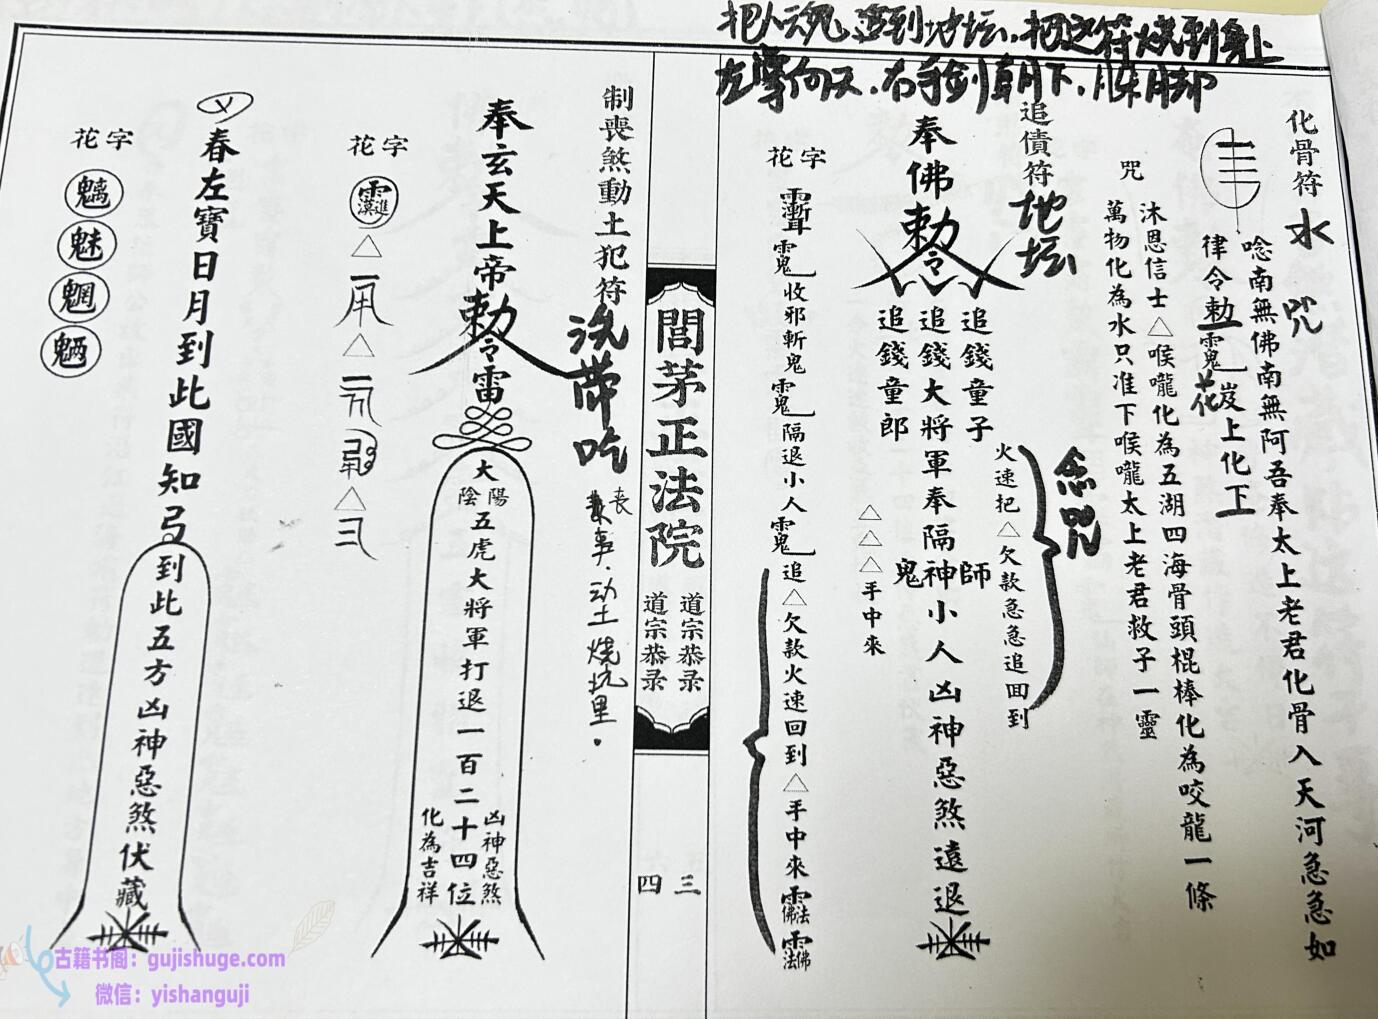 把人魂追到地坛，把这符烧到身上
右手剑朝下
化骨符
水
咒
唸南無佛南無阿吾奉太上老君化骨入天河急急如
律令勅
上化下
花
咒
沐恩信士△喉嚨化為五湖四海骨頭棍棒化為咬龍一條
萬物化為水只准下喉嚨太上老君救子一靈
追債符
地坛
念咒
火速把△欠款急急追回到
奉佛勅令
追錢童子
追錢大將軍奉隔神小人凶神惡煞遠退
師
鬼
追錢童郎
△△△手中來
花字
收邪斬鬼
隔退小人
追△欠款火速回到△手中來
閭茅正法院
道宗恭录
道宗恭录
三
四
制喪煞動土犯符
洗帶吃
丧
事．动土烧坑里．
奉玄天上帝勅令雷
大
陽
陰
五虎大將軍打退一百二十四位
凶神惡煞
化為吉祥
花字
△
△
△
春左寶日月到此國知
到此五方凶神惡煞伏藏
花字
魑
魅
魍
魎
古籍书阁：gujishuge.com
微信：yishanguji